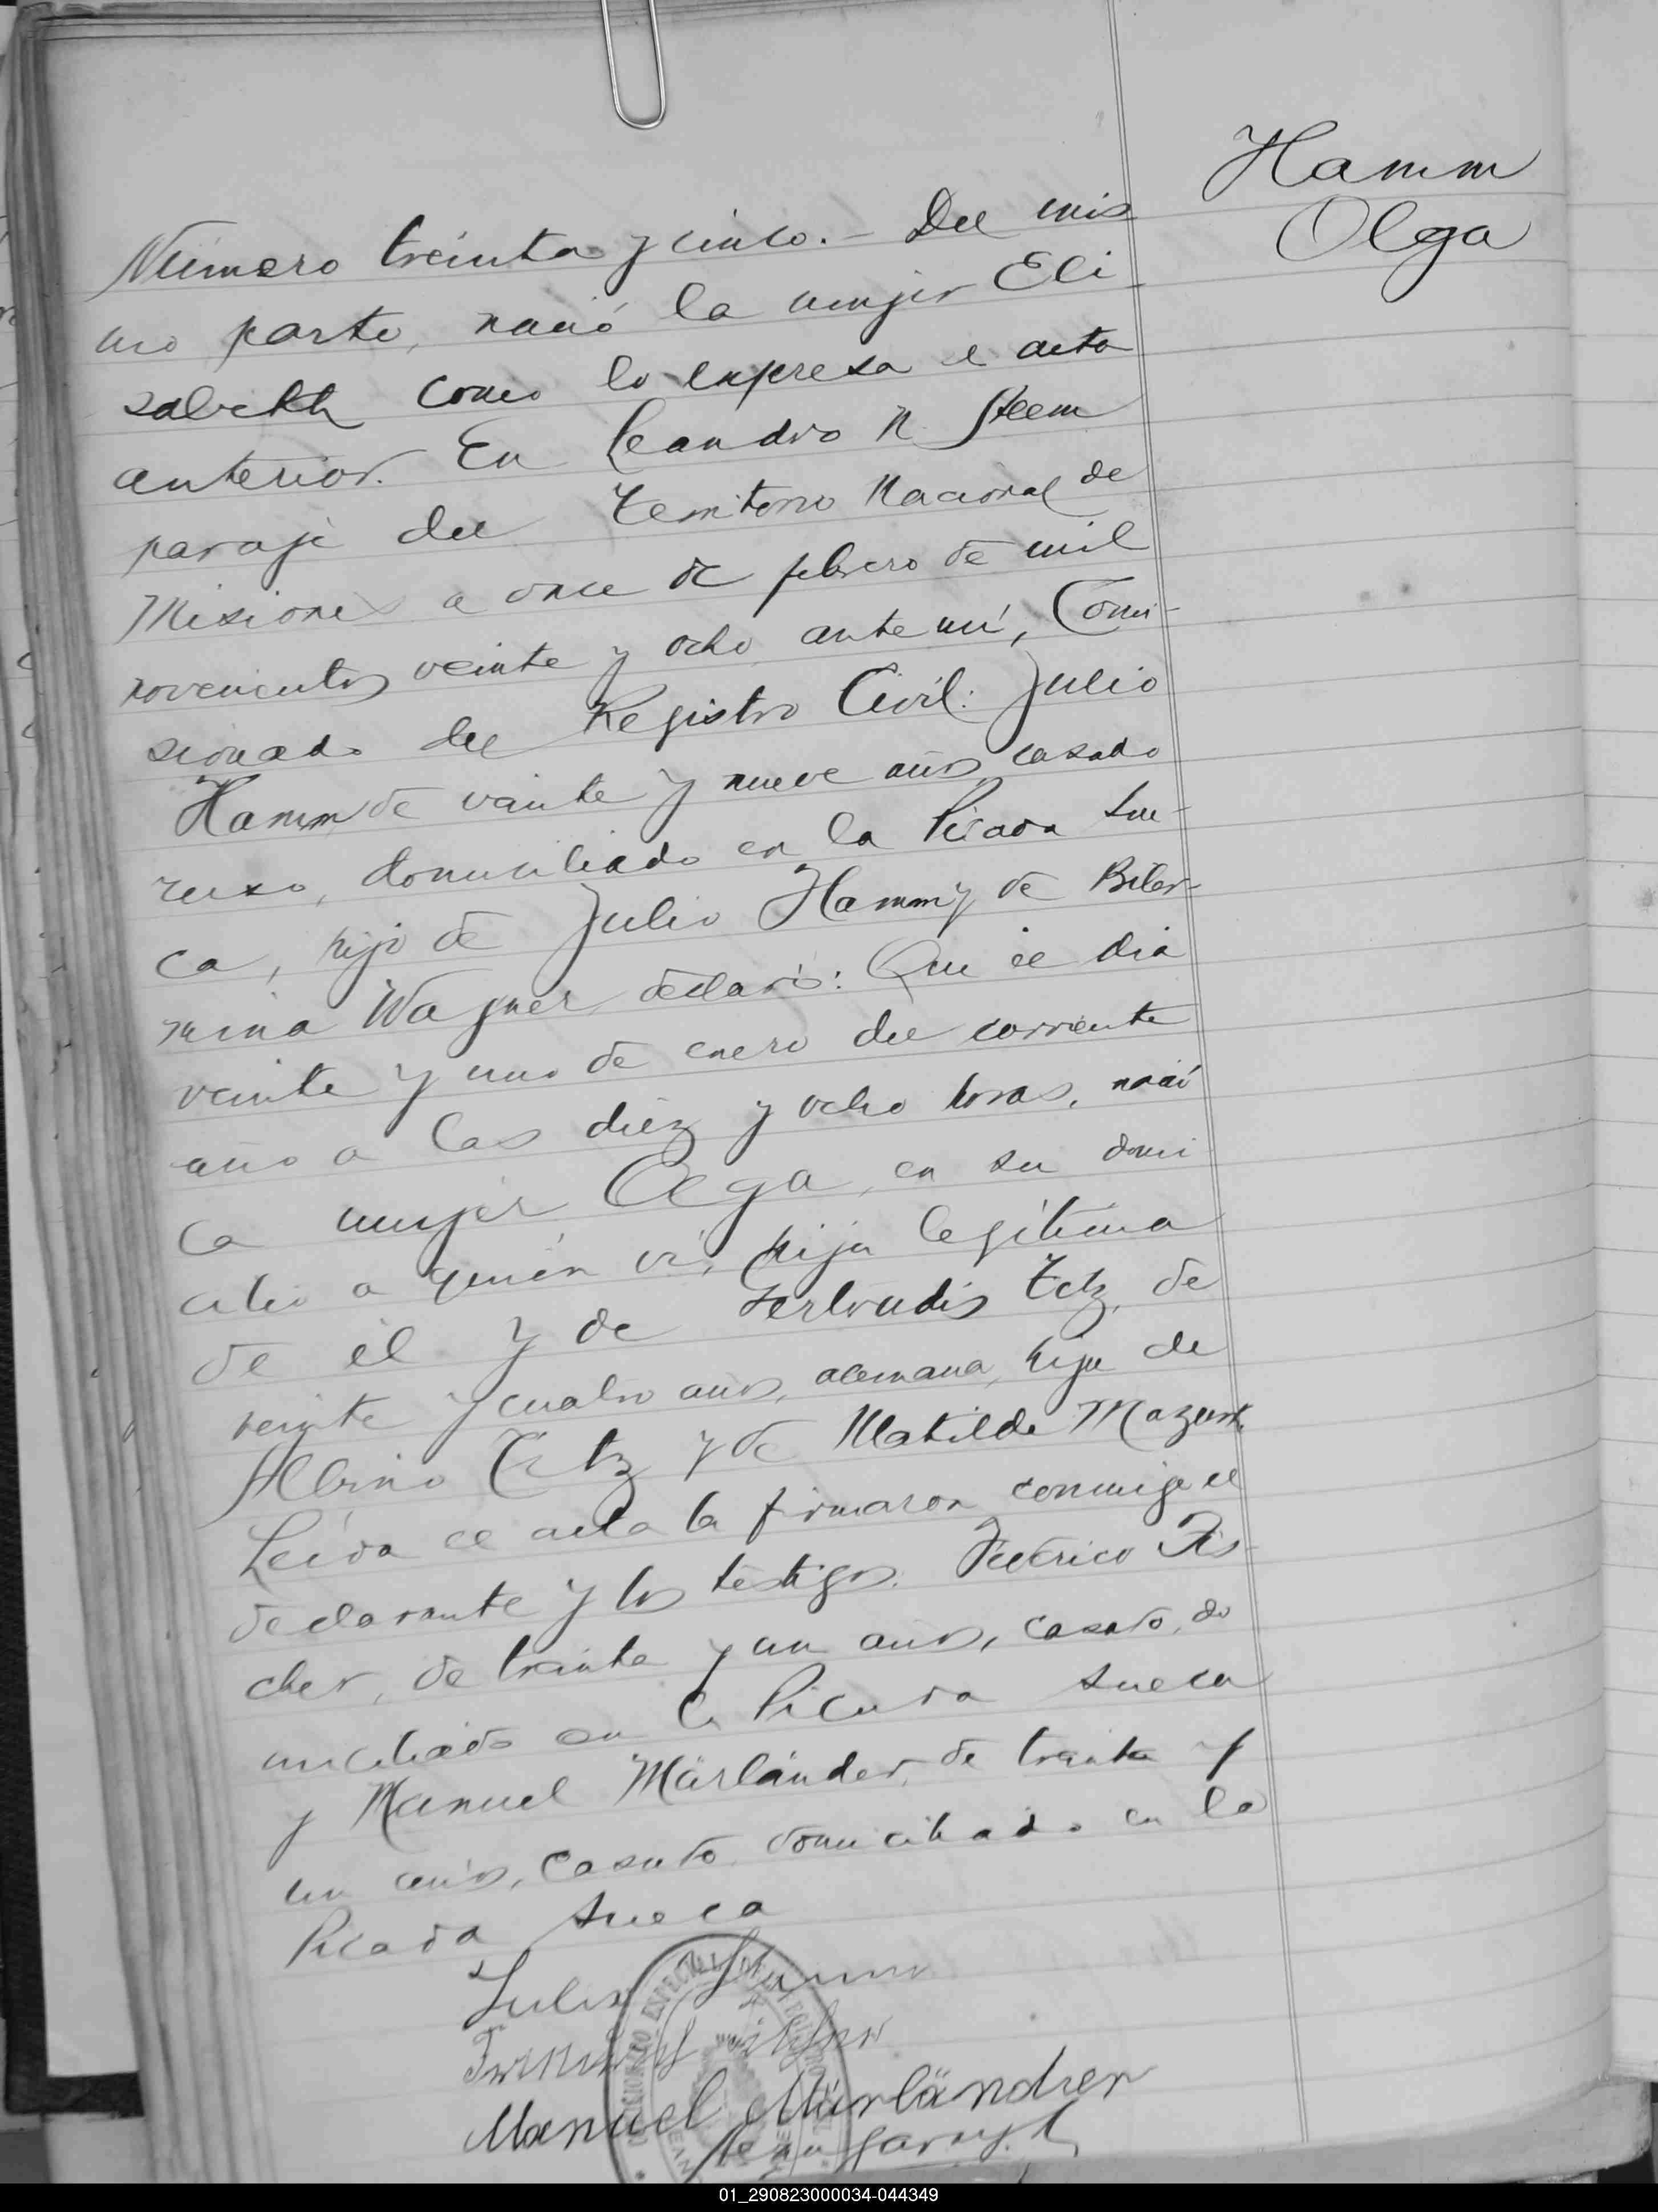 Hamm
Olga
Número treinta y cinco.- Del mis
mo parto, nació la mujer Eli-
sabethh como lo expresa el acta
anterior. En Leandro N. Alem
paraje del Territorio Nacional de
Misiones a once de febrero de mil
novecientos veinte y ocho ante mí, Comi-
sionado del Registro Civil: Julio
Hamm de veinte y nueve años casado
ruso, domiciliado en la Picada Sue-
ca, hijo de Julio Hamm y de
mina Wagner declaró: Que el dia
veinte y uno de enero del corriente
año a las diez y ocho horas, nació
la mujer Olga, en su domi
cilio a quién ví, hija legítima
de él y de Gertrudis Tetz, de
veinte y cuatro años, alemana, hija de
Albino Tetz y de Matilde
Leída el acta la firmaron conmigo el
declarante y los testigos. Federico Fis-
cher, de treinta y un años, casado, do
miciliado en la Picada Sueca
y Manuel Märländer, de treinta y
un años, casado, domiciliado en la
Picada Sueca
Julio Hamm
Manuel Märländrer